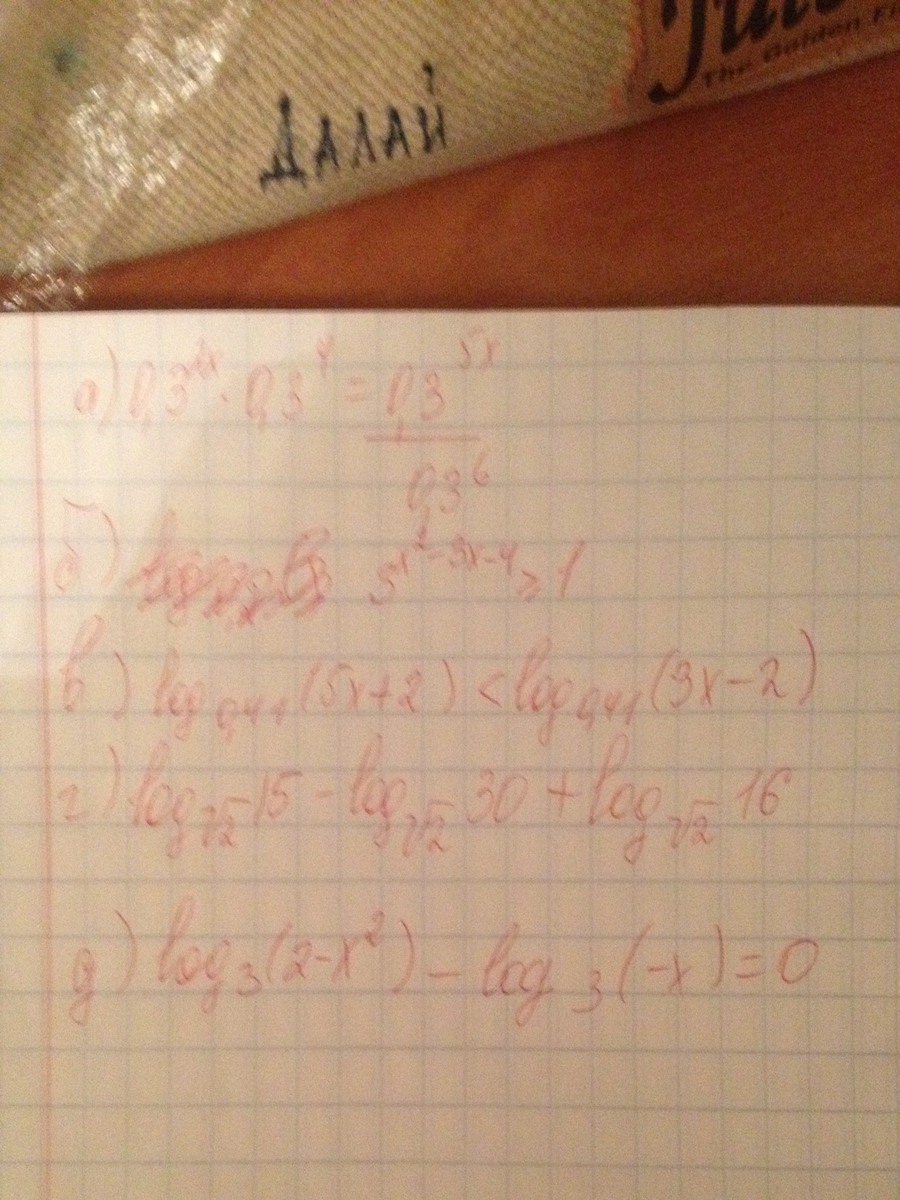 The Golden Fi
ДАЛАЙ
а) 0,3 · 0,3 = 0,3^5x
0,3^6
б) 5^x²-3x-4 ≥ 1
в) log 0,41 (5x+2) < log 0,41 (3x-2)
г) log √2 15 - log √2 30 + log √2 16
д) log 3 (2-x²) - log 3 (-x) = 0